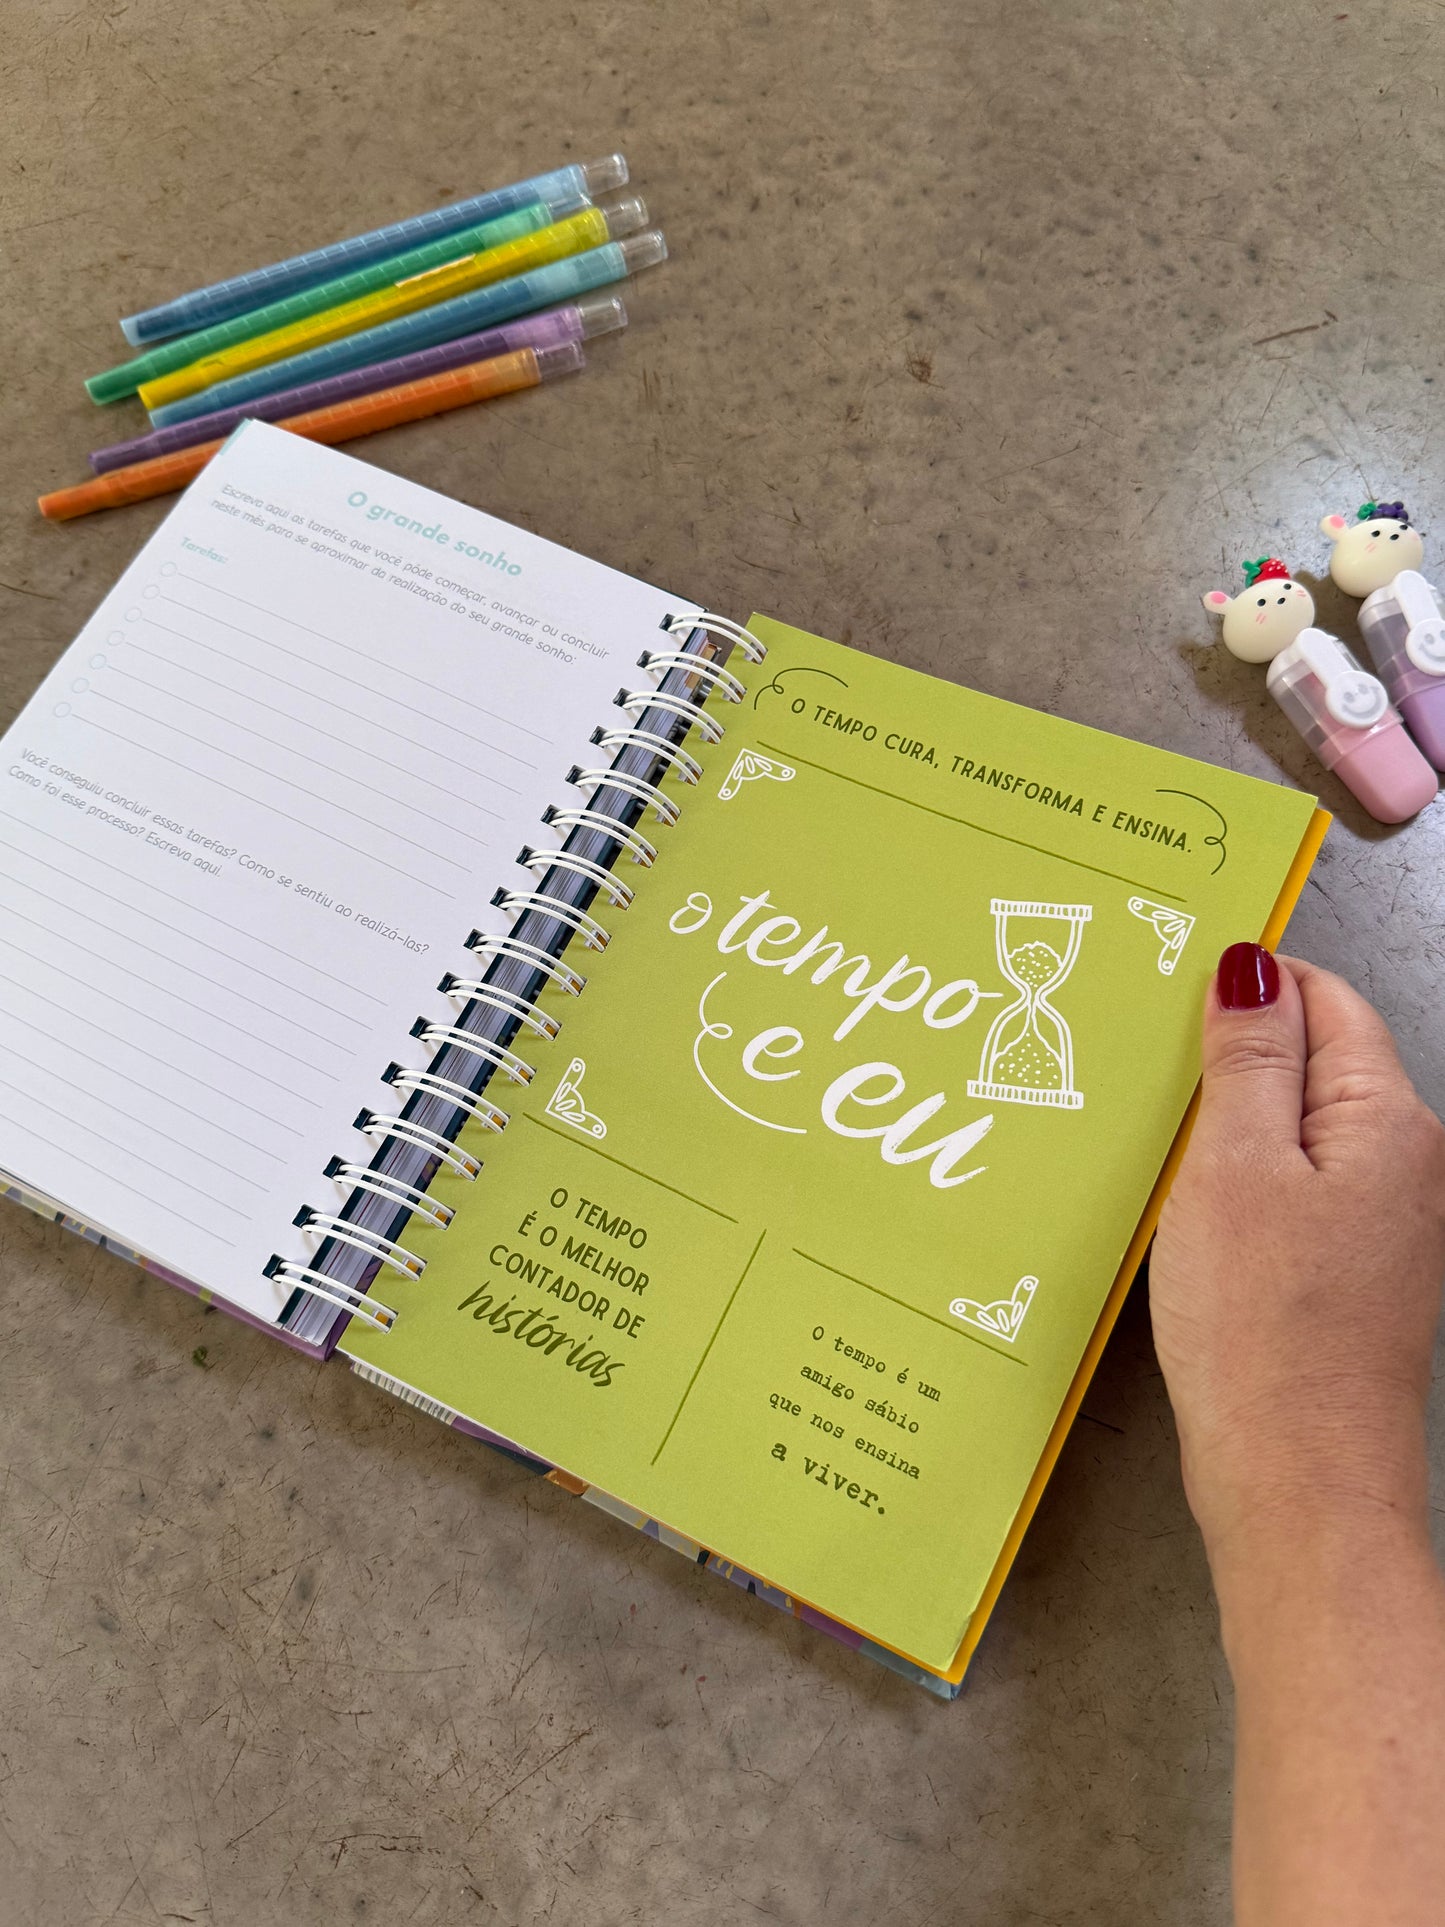 O grande sonho
Escreva aqui as tarefas que você pode começar, avançar ou concluir
neste mês para se aproximar da realização do seu grande sonho:
Tarefas:
Você conseguiu concluir essas tarefas? Como se sentiu ao realizá-las?
Como foi esse processo? Escreva aqui.
O TEMPO CURA, TRANSFORMA E ENSINA.
o tempo
e eu
O TEMPO
É O MELHOR
CONTADOR DE
histórias
O tempo é um
amigo sábio
que nos ensina
a viver.